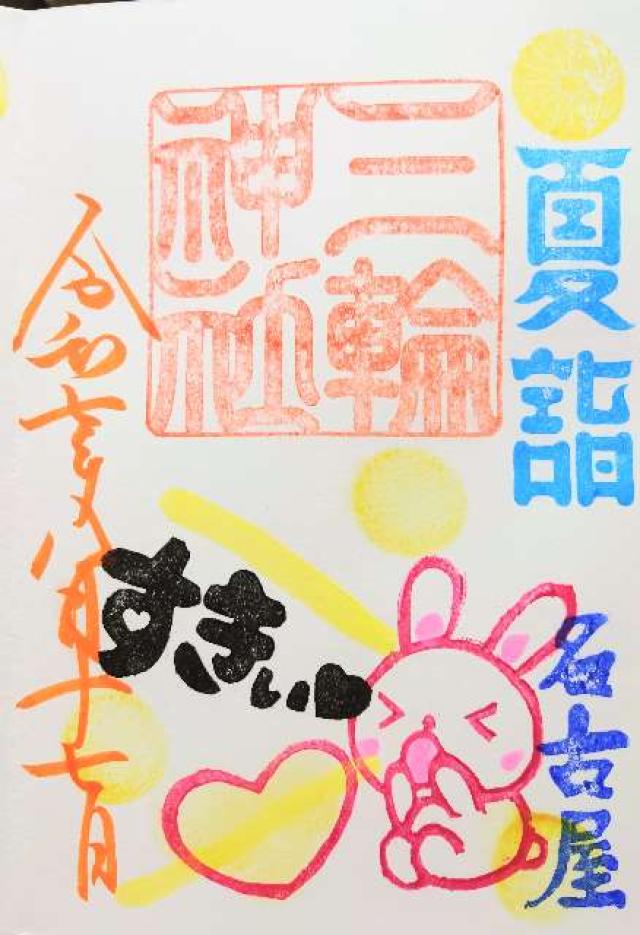 夏詣
名古屋
三輪
神社
すきぃ♥
令和元年八月十七日